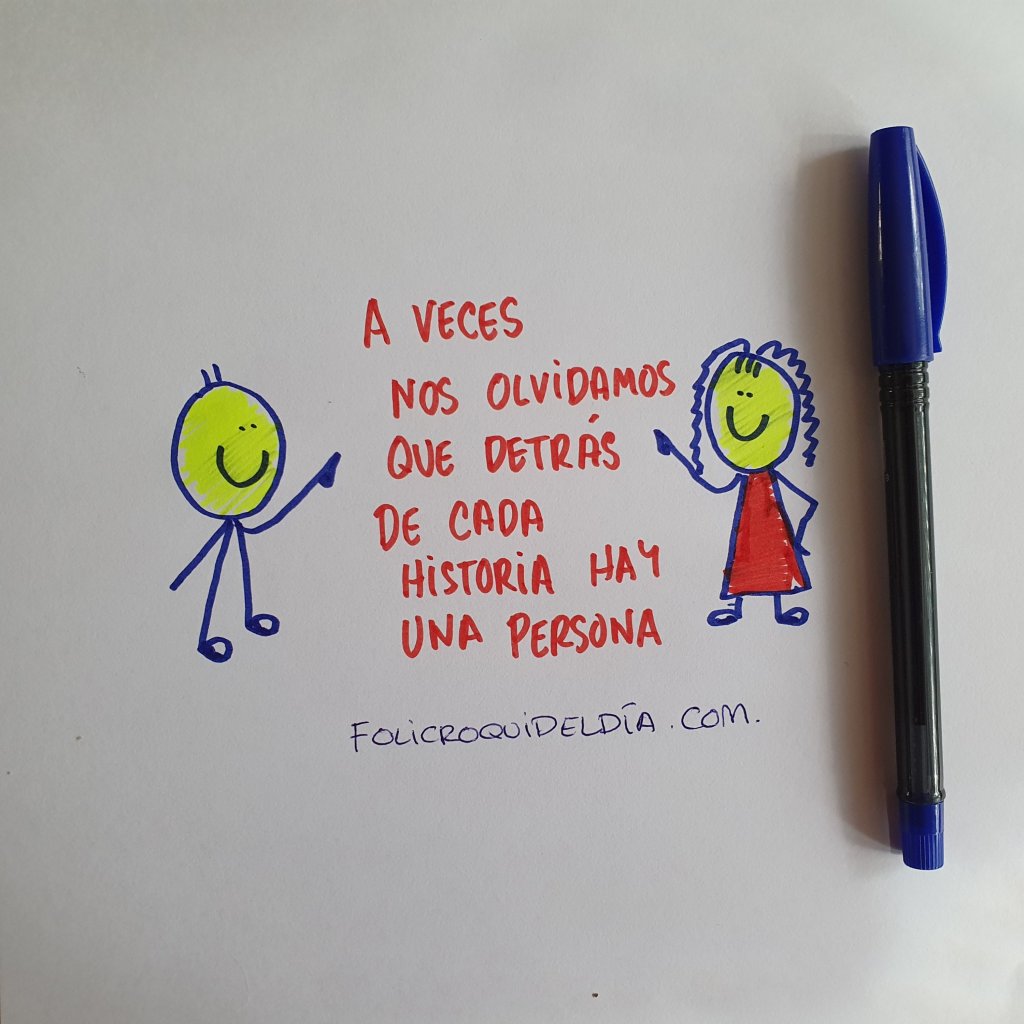 A VECES
NOS OLVIDAMOS
QUE DETRÁS
DE CADA
HISTORIA HAY
UNA PERSONA
FOLICROQUIDELDÍA.COM.